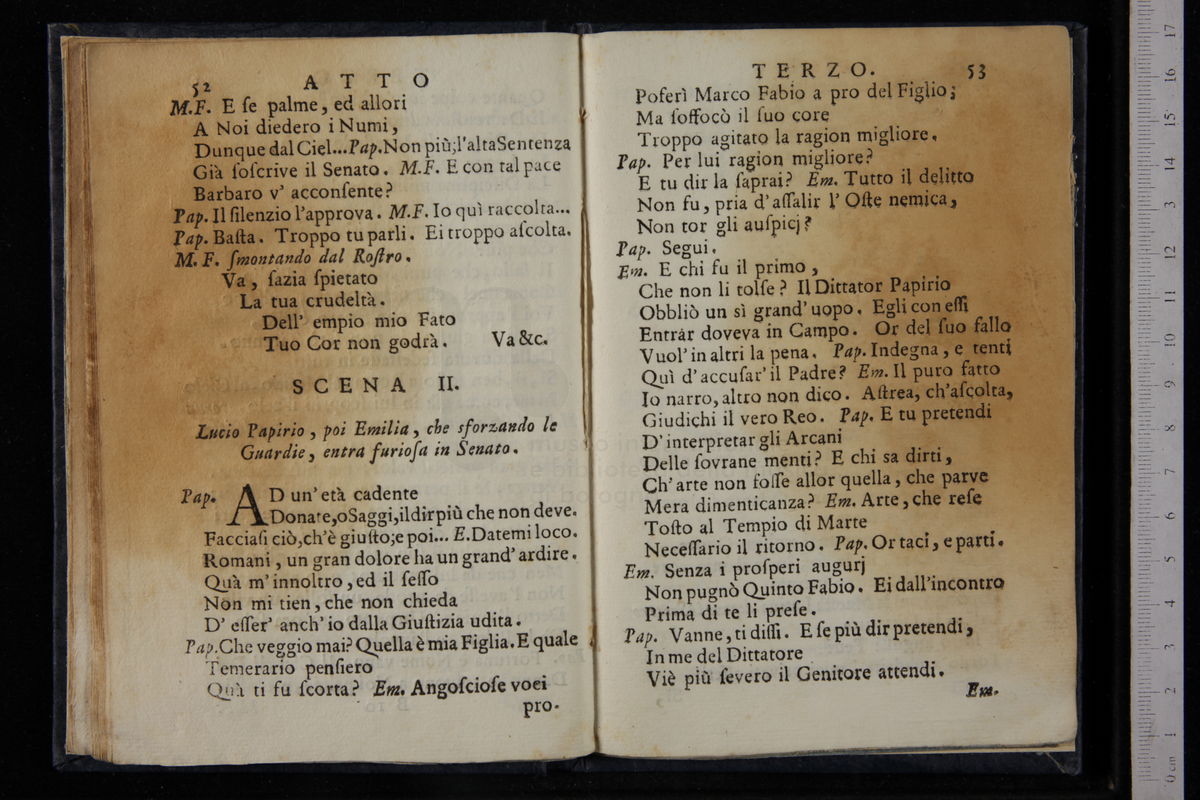 52 ATTO
M.F. E ſe palme, ed allori
A Noi diedero i Numi,
Dunque dal Ciel...Pap.Non più;l'altaSentenza
Già ſoſcrive il Senato. M.F. E con tal pace
Barbaro v' acconſente?
Pap. Il ſilenzio l'approva. M.F. Io quì raccolta...
Pap. Baſta. Troppo tu parli. Ei troppo aſcolta.
M. F. ſmontando dal Roſtro.
Va, ſazia ſpietato
La tua crudeltà.
Dell' empio mio Fato
Tuo Cor non godrà. Va &c.
SCENA II.
Lucio Papirio, poi Emilia, che sforzando le
Guardie, entra furioſa in Senato.
Pap. AD un' età cadente
Donate,oSaggi,ildirpiù che non deve.
Facciaſi ciò,ch'è giuſto;e poi... E.Datemi loco.
Romani, un gran dolore ha un grand' ardire.
Quà m' innoltro, ed il ſeſſo
Non mi tien, che non chieda
D' eſſer' anch' io dalla Giuſtizia udita.
Pap.Che veggio mai? Quella è mia Figlia.E quale
Temerario penſiero
Quà ti fu ſcorta? Em. Angoſcioſe voci
pro-
TERZO. 53
Poferì Marco Fabio a pro del Figlio;
Ma ſoffocò il ſuo core
Troppo agitato la ragion migliore.
Pap. Per lui ragion migliore?
E tu dir la ſaprai? Em. Tutto il delitto
Non fu, pria d' aſſalir l' Oſte nemica,
Non tor gli auſpicj?
Pap. Segui.
Em. E chi fu il primo,
Che non li tolſe? Il Dittator Papirio
Obbliò un sì grand' uopo. Egli con eſſi
Entrar doveva in Campo. Or del ſuo fallo
Vuol' in altri la pena. Pap. Indegna, e tenti
Quì d' accuſar' il Padre? Em. Il puro fatto
Io narro, altro non dico. Aſtrea, ch'aſcolta,
Giudichi il vero Reo. Pap. E tu pretendi
D' interpretar gli Arcani
Delle ſovrane menti? E chi sa dirti,
Ch' arte non foſſe allor quella, che parve
Mera dimenticanza? Em. Arte, che reſe
Toſto al Tempio di Marte
Neceſſario il ritorno. Pap. Or taci, e parti.
Em. Senza i proſperi augurj
Non pugnò Quinto Fabio. Ei dall'incontro
Prima di te li preſe.
Pap. Vanne, ti diſſi. E ſe più dir pretendi,
In me del Dittatore
Viè più ſevero il Genitore attendi.
Em.